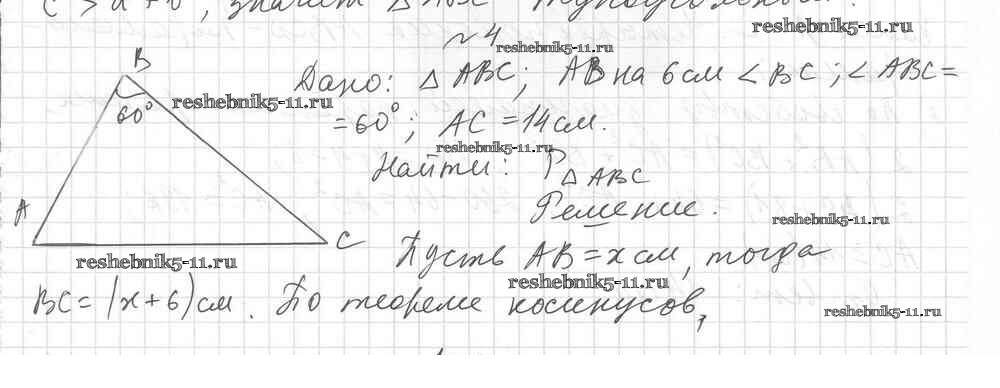 c > a + b, значит △ABC тупоугольный.
№ 4
reshebnik5-11.ru
reshebnik5-11.ru
B
60°
A
C
Дано: △ ABC; AB на 6 см < BC; ∠ ABC =
reshebnik5-11.ru
= 60°; AC = 14 см.
reshebnik5-11.ru
Найти: P △ ABC
Решение.
reshebnik5-11.ru
Пусть AB = x см, тогда
reshebnik5-11.ru
reshebnik5-11.ru
BC = (x + 6) см. По теореме косинусов,
reshebnik5-11.ru